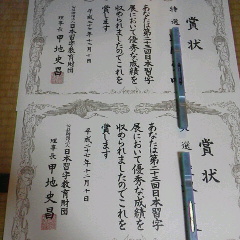 賞状
特選
あなたは第二十三回日本習字
展において優秀な成績を
収められましたのでこれを
賞します
平成二十七年十一月十日
公益財団法人日本習字教育財団
理事長 甲地史昌
賞状
特選
あなたは第二十三回日本習字
展において優秀な成績を
収められましたのでこれを
賞します
平成二十七年十一月十日
公益財団法人日本習字教育財団
理事長 甲地史昌